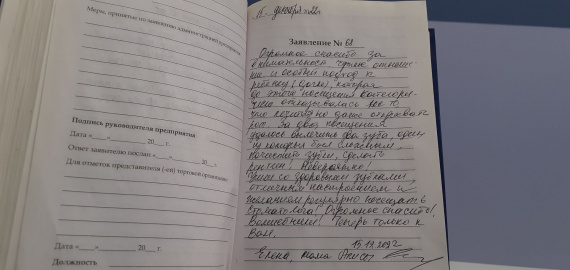 Меры, принятые по заявлению администрацией предприятия
Подпись руководителя предприятия
Дата «___» ____________ 20___ г.
Ответ заявителю послан «___» ________ 20___ г.
Для отметок представителя (-ей) торговой организации
Дата «___» ____________ 20___ г.
Должность
11. декабря
Заявление № 68
Огромное спасибо за
внимательное чуткое отноше-
ние и особый подход к
ребенку (дочке), которая
до этого посещения категори-
чески отказывалась не то,
что лечить но даже открывать
рот. За два посещения
удалось вылечить два зуба, один
из которых был сложным,
почистить зубы, сделать
рентген! Невероятно!
Ушли со здоровыми зубками,
отличным настроением и
желанием регулярно посещать
стоматолога! Огромное спасибо!
Волшебники! Теперь только к
Вам.
Елена, мама